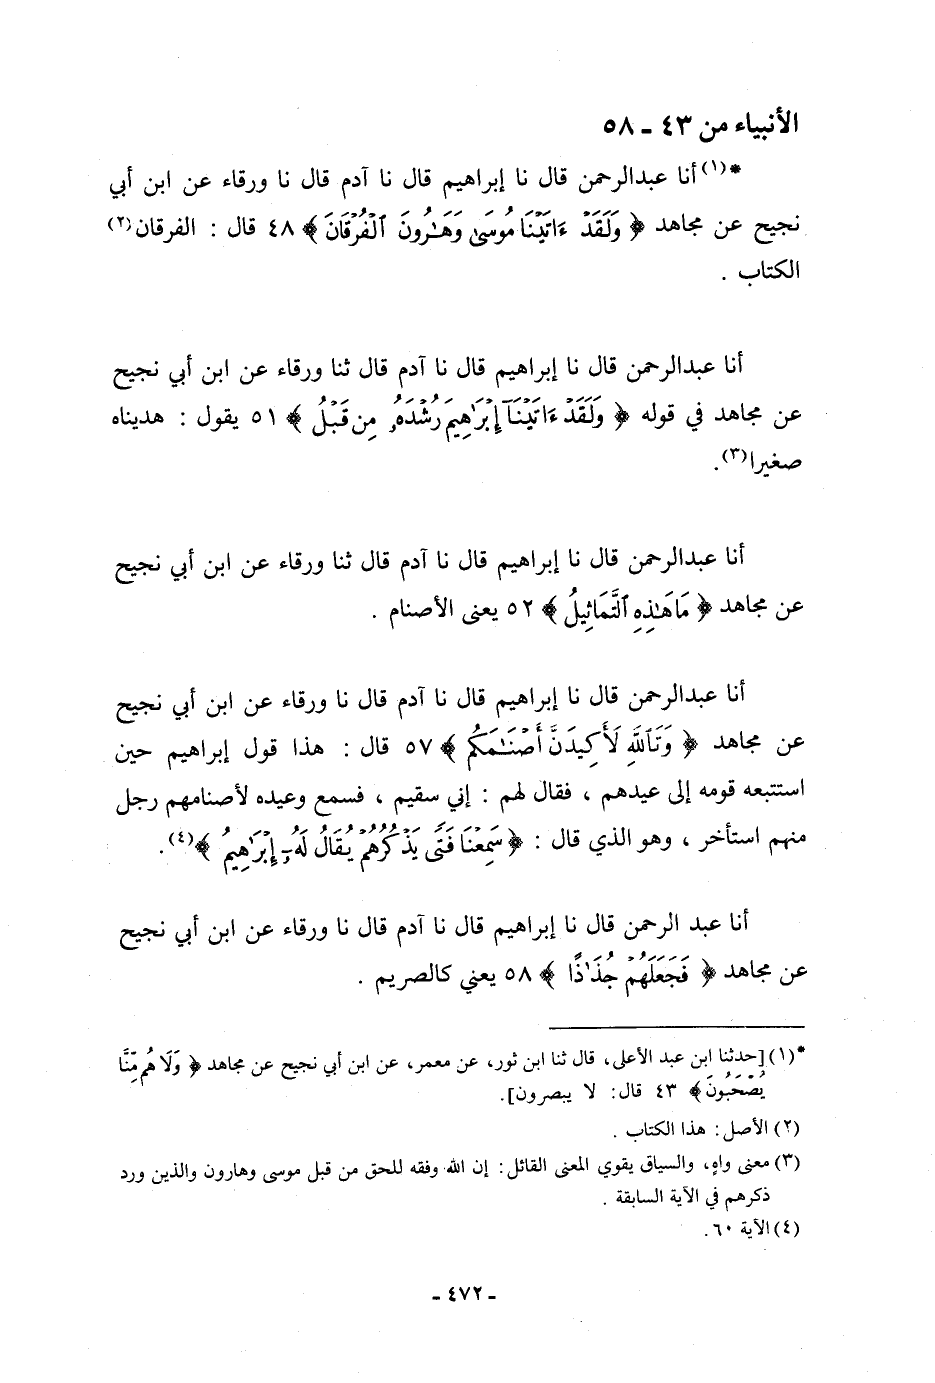 الأنبياء من ٤٣ ـ ٥٨
*(١) أنا عبدالرحمن قال نا إبراهيم قال نا آدم قال نا ورقاء عن ابن أبي
نجيح عن مجاهد ﴿ وَلَقَدْ ءَاتَيْنَا مُوسَىٰ وَهَـٰرُونَ ٱلْفُرْقَانَ ﴾ ٤٨ قال : الفرقان (٢)
الكتاب .
أنا عبدالرحمن قال نا إبراهيم قال نا آدم قال ثنا ورقاء عن ابن أبي نجيح
عن مجاهد في قوله ﴿ وَلَقَدْ ءَاتَيْنَآ إِبْرَٰهِيمَ رُشْدَهُۥ مِن قَبْلُ ﴾ ٥١ يقول : هديناه
صغيرا (٣).
أنا عبدالرحمن قال نا إبراهيم قال نا آدم قال ثنا ورقاء عن ابن أبي نجيح
عن مجاهد ﴿ مَا هَـٰذِهِ ٱلتَّمَاثِيلُ ﴾ ٥٢ يعنى الأصنام .
أنا عبدالرحمن قال نا إبراهيم قال نا آدم قال نا ورقاء عن ابن أبي نجيح
عن مجاهد ﴿ وَتَٱللَّهِ لَأَكِيدَنَّ أَصْنَـٰمَكُم ﴾ ٥٧ قال : هذا قول إبراهيم حين
استتبعه قومه إلى عيدهم ، فقال لهم : إني سقيم ، فسمع وعيده لأصنامهم رجل
منهم استأخر ، وهو الذي قال : ﴿ سَمِعْنَا فَتًى يَذْكُرُهُمْ يُقَالُ لَهُۥٓ إِبْرَٰهِيمُ ﴾(٤).
أنا عبد الرحمن قال نا إبراهيم قال نا آدم قال نا ورقاء عن ابن أبي نجيح
عن مجاهد ﴿ فَجَعَلَهُمْ جُذَٰذًا ﴾ ٥٨ يعني كالصريم .
*(١) [حدثنا ابن عبد الأعلى، قال ثنا ابن ثور، عن معمر، عن ابن أبي نجيح عن مجاهد ﴿ وَلَا هُم مِّنَّا
يُصْحَبُونَ ﴾ ٤٣ قال: لا يبصرون].
(٢) الأصل: هذا الكتاب .
(٣) معنى واهٍ، والسياق يقوي المعنى القائل: إن الله وفقه للحق من قبل موسى وهارون والذين ورد
ذكرهم في الآية السابقة .
(٤) الآية ٦٠.
ـ ٤٧٢ ـ